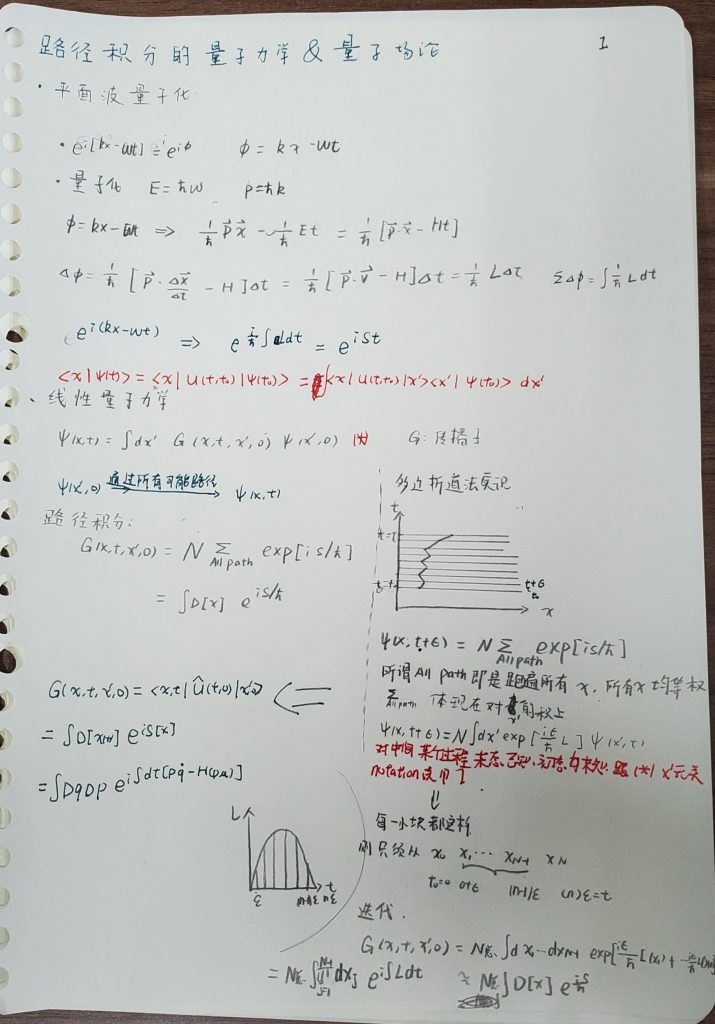 路径积分的量子力学 & 量子场论
1
· 平面波量子化
· e^{i[kx-wt]} = e^{iϕ} ϕ = kx - wt
· 量子化 E = ħw p = ħk
ϕ = kx - wt ⇒ 1/ħ p⃗ x⃗ - 1/ħ Et = 1/ħ [p⃗·x⃗ - Ht]
Δϕ = 1/ħ [p⃗·Δx⃗/Δt - H]Δt = 1/ħ [p⃗·v⃗ - H]Δt = 1/ħ LΔt ΣΔϕ = ∫1/ħ Ldt
e^{i(kx-wt)} ⇒ e^{i/ħ ∫Ldt} = e^{iSt}
<x|ψ(t)> = <x|U(t,t₀)|ψ(t₀)> = ∫<x|U(t,t₀)|x'><x'|ψ(t₀)> dx'
· 线性量子力学
ψ(x,t) = ∫dx' G(x,t,x',0) ψ(x',0) (*) G: 传播子
ψ(x',0) 通过所有可能路径 → ψ(x,t)
路径积分:
G(x,t,x',0) = N Σ_{All path} exp[is/ħ]
= ∫D[x] e^{iS/ħ}
G(x,t,x',0) = <x,t|Û(t,0)|x',0>
= ∫D[x(t)] e^{iS[x]}
= ∫DqDp e^{i∫dt[pq̇-H(p,q)]}
L t
ε (n-1)ε nε
多边折道法实识
t
t=t
t+ε
t₀
x
ψ(x,t+ε) = N Σ_{All path} exp[is/ħ]
所谓 All path 即是跑遍所有 x, 所有 x 均等权
Σ_{All path} 体现在对 x' 的权上
ψ(x,t+ε) = N∫dx' exp[iε/ħ L] ψ(x',t)
对中间某个过程 末态已知, 初态 未知, 跟 (*) x' 无关
notation 改用了
⇓
每一小块都这样
则只须从 x₀ x₁ ··· x_{N-1} x_N
t₀=0 0+ε (n-1)ε (n)ε=t
迭代.
G(x,t,x',0) = N ∫dx₁ - dx_{N-1} exp[iε/ħ L(x₁) +
= N ∫∏_{j=1}^{N-1} dx_j e^{i∫Ldt} ≈ N ∫D[x] e^{iS/ħ}